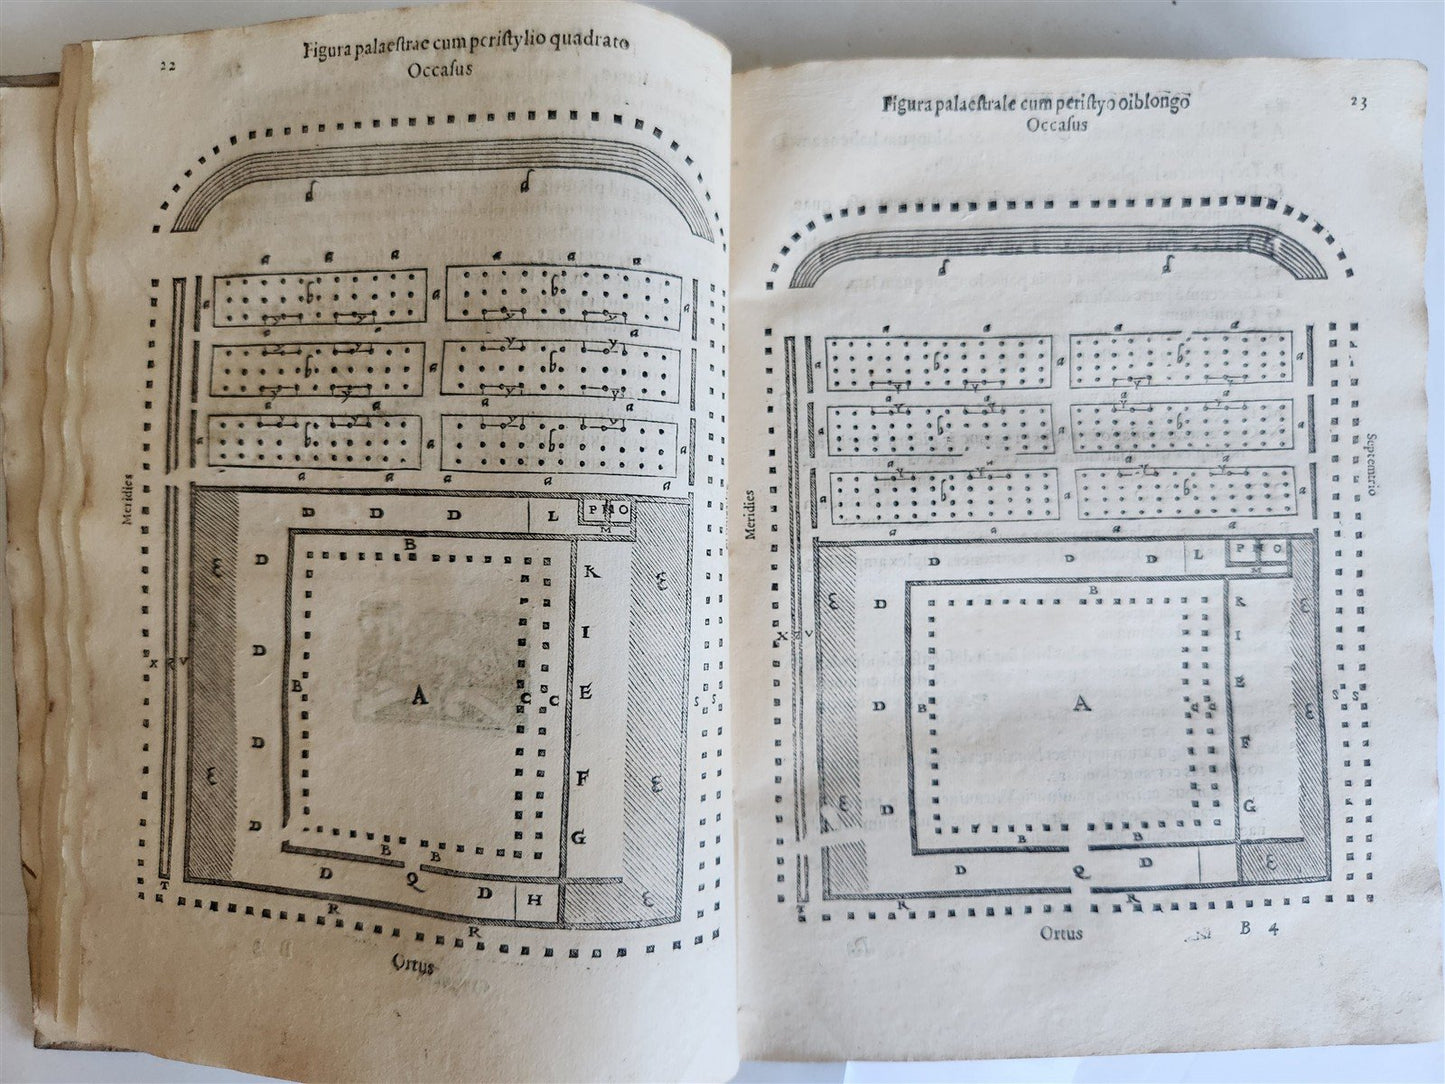 22
Figura palaeſtrae cum periſtylio quadrato
Occaſus
d d
a a a a a a
a b a b a
y y y y
a a a
y y y y
b b
y y y y
a a a a
y y y y
a b a b
a a a a
Meridies
D D D L P N O
M
B
Ɛ D K Ɛ
I
D
X Z V B A C C E S S
D
Ɛ F Ɛ
D G
B B
D Q D H Ɛ
T R R
Ortus
Figura palaeſtrale cum periſtyo oiblongo
23
Occaſus
d d
a a a a
a b a b a
y y y y
y y y y
a b b a
a a
y y y y
a b a b
a a a a
Meridies
Septemtrio
D D D L P N O
M
B
Ɛ D K Ɛ
X Z V I
D B A C C E Ɛ S S
F
Ɛ D G
B B
D Q D Ɛ
T R R
Ortus
B 4